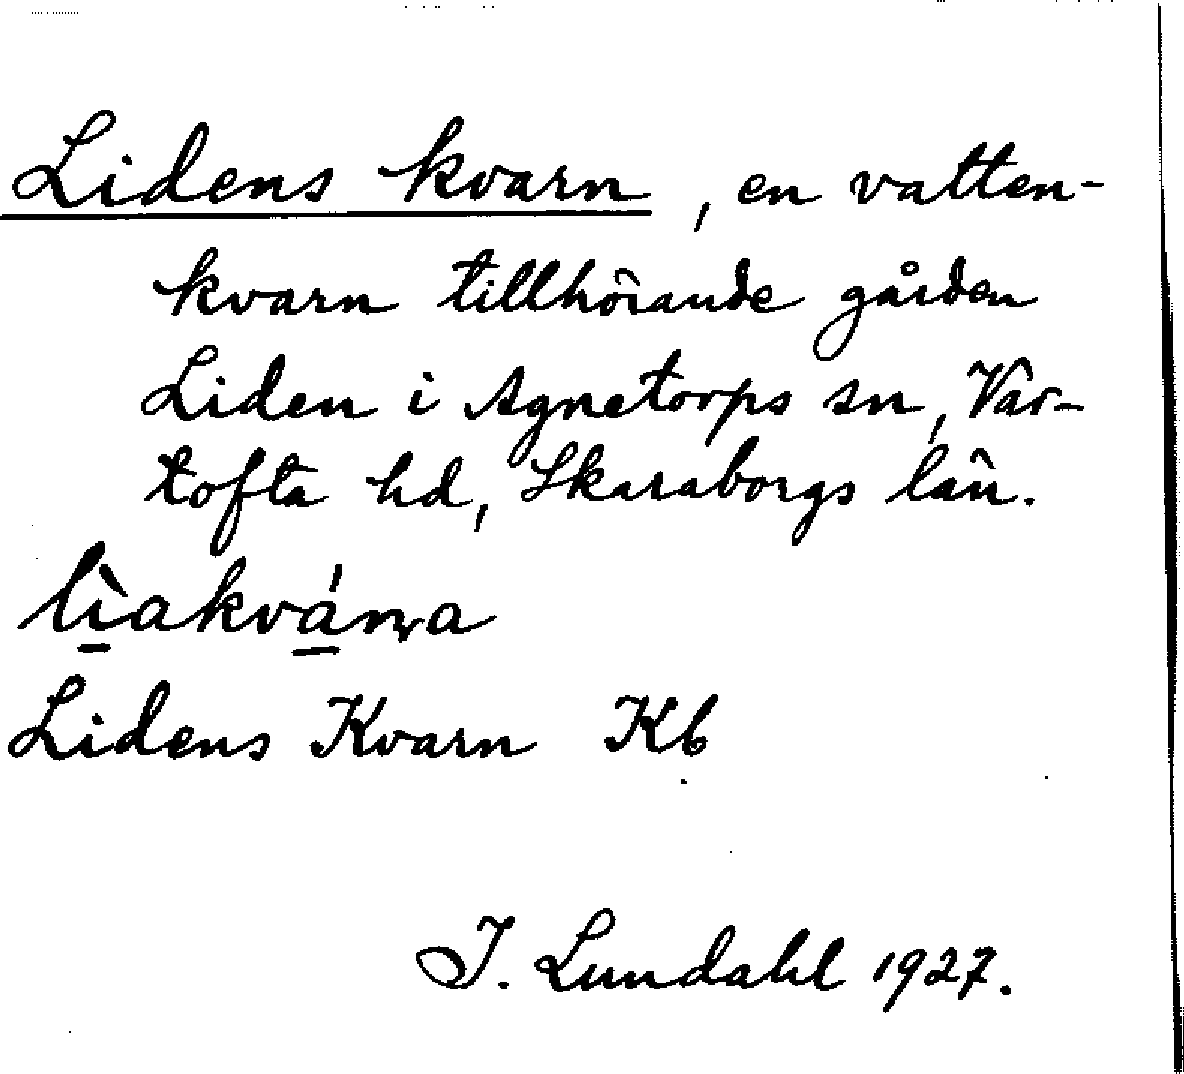 Lidens kvarn, en vatten-
kvarn tillhörande gården
Liden i Agnetorps sn, Var-
tofta hd, Skaraborgs län.
lì̱akvá̱ɳa
Lidens Kvarn Kb
I. Lundahl 1927.